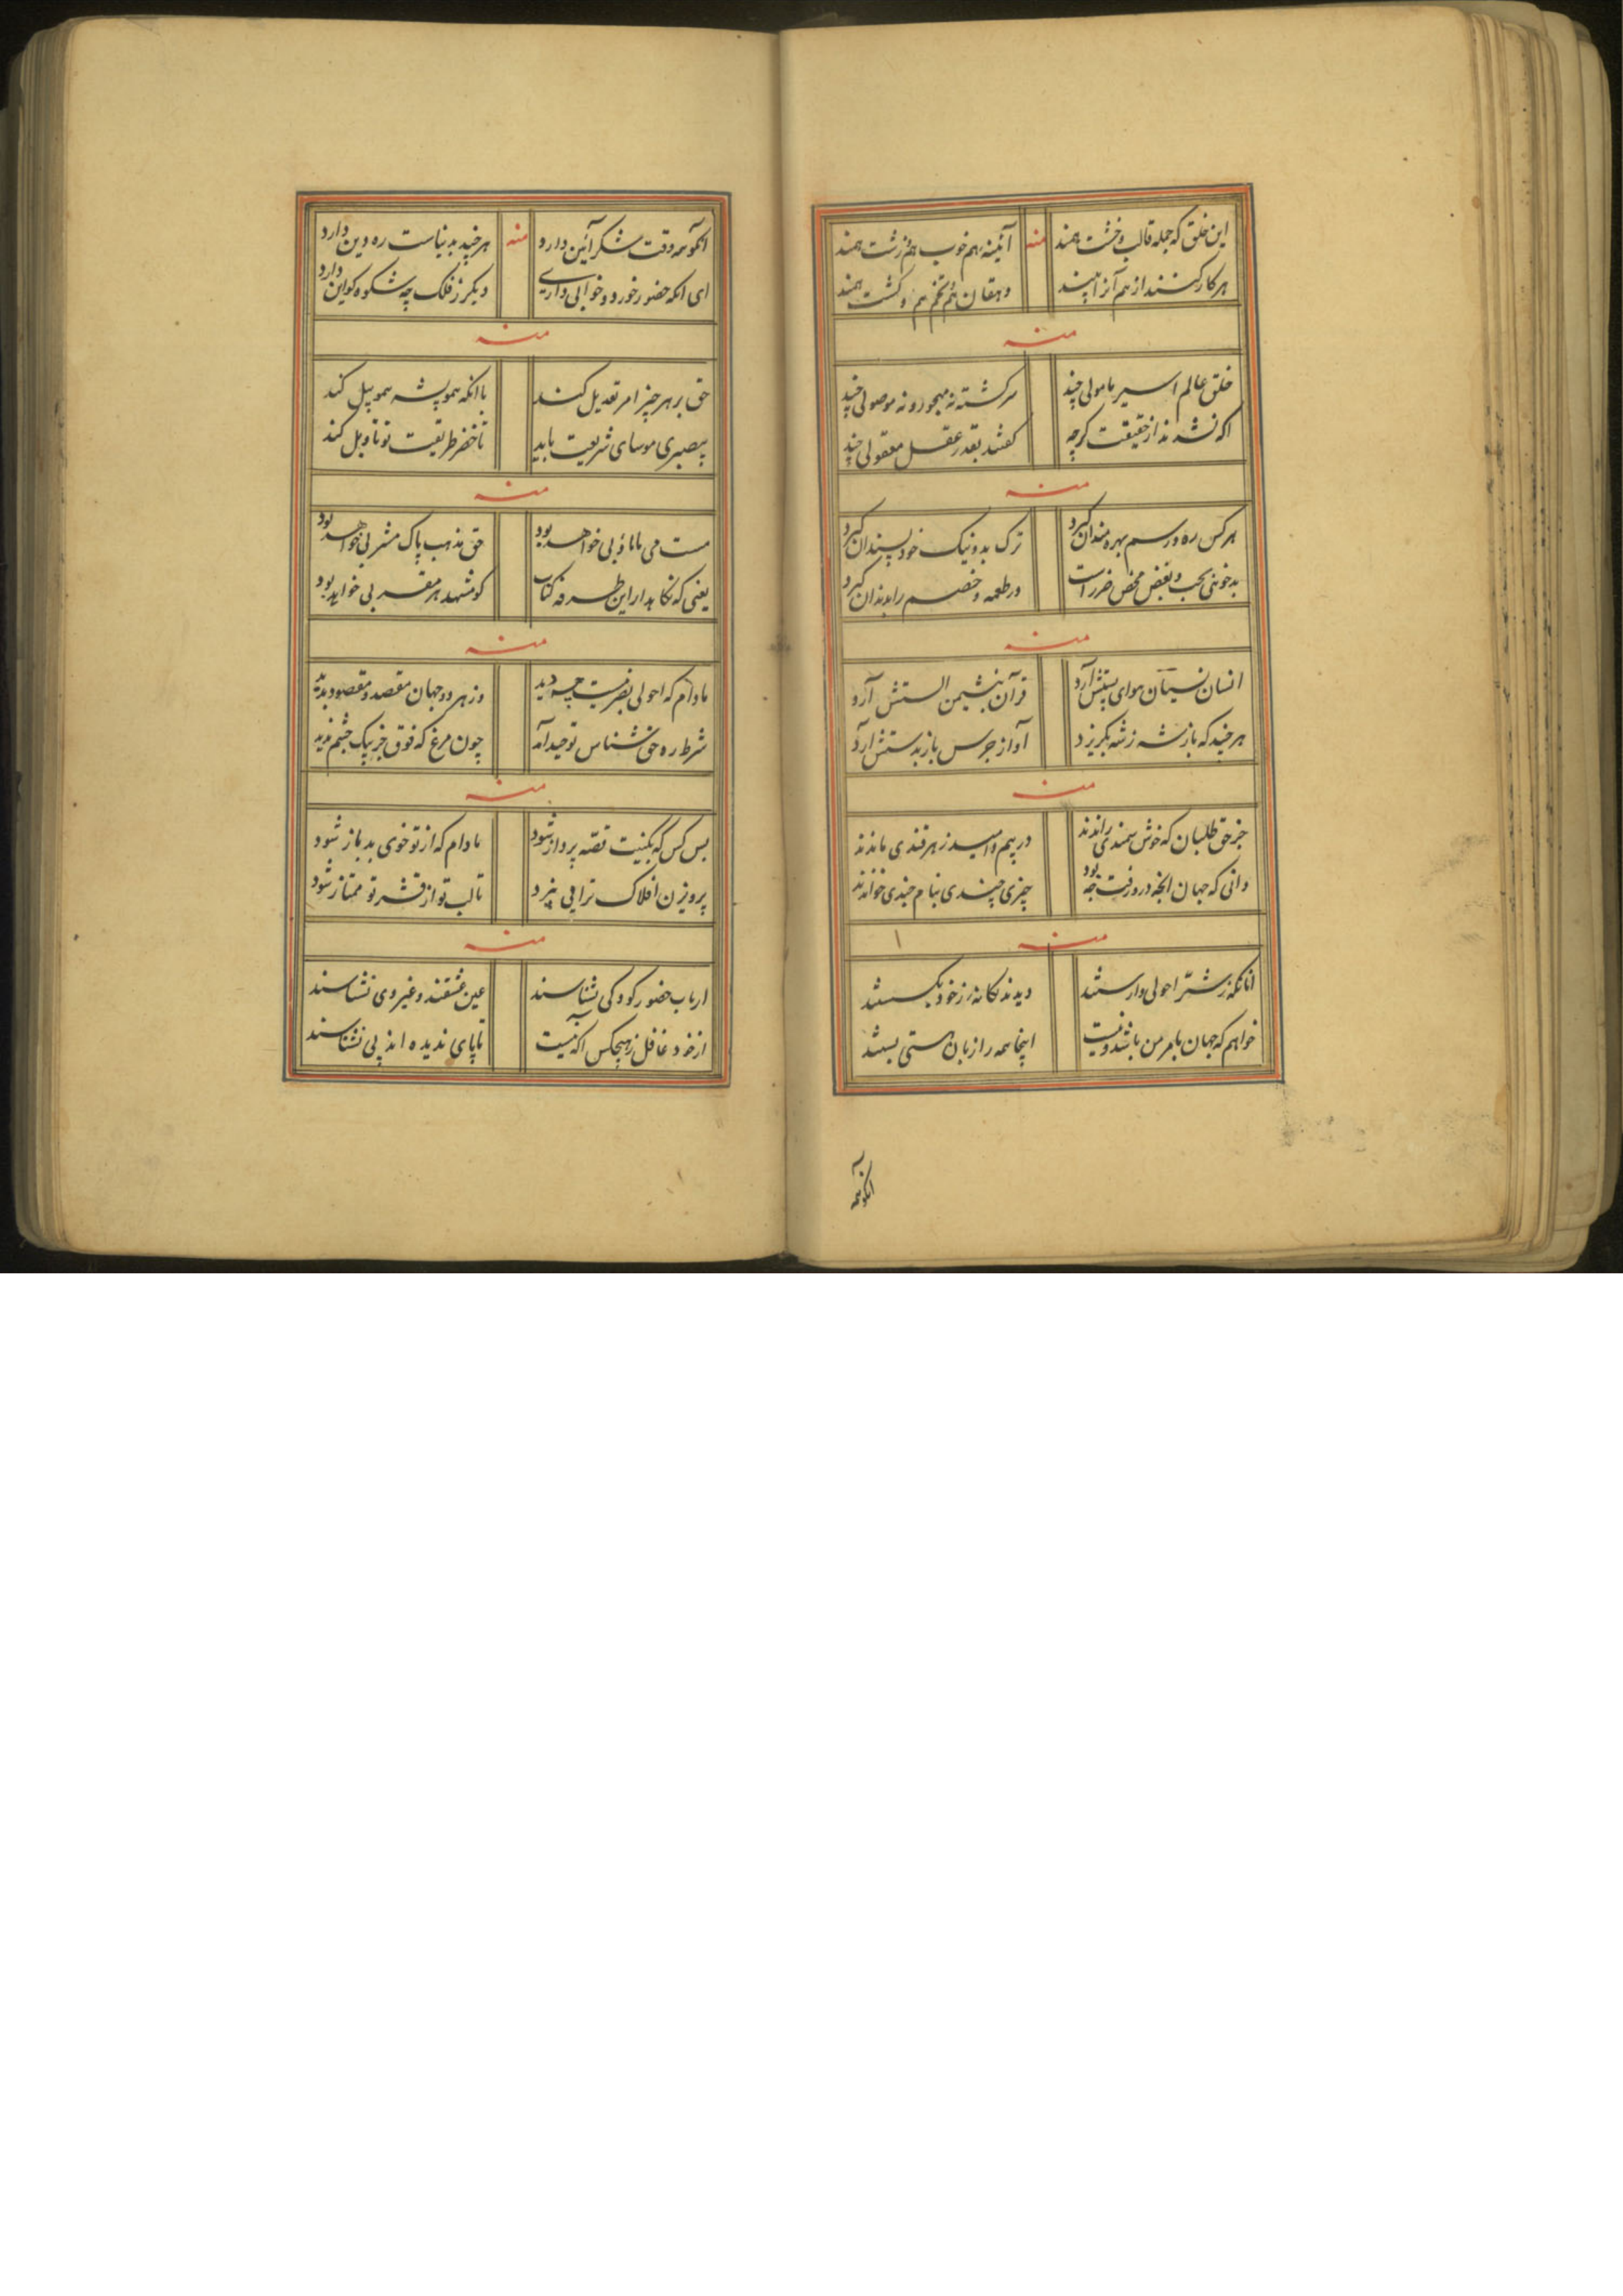 این خلق که جمله قالب و خشت همند منه آئینه بهم خوب هم زشت همند
هر کار کنند از هم آنرا بینند دهقان هم تخم هم و کشت همند
منه
خلق عالم اسیر مامولی چند سرگشته نه مهجور و نه موصولی چند
اگه نشدند از حقیقت گرچه گفتند بقدر عقل معقولی چند
منه
هر کس ره و رسم بهره مندان گیرد ترک بد و نیک خود پسندان گیرد
بدخوئی بحب و بغض محض ضرر است در طعمه و خصم را بدندان گیرد
منه
انسان نسیان سوای پستش آرد قرآن بنشیمن الستش آرد
هر چند که باز شه ز شه بگریزد آواز جرس باز بدستش آرد
منه
جز حق طلبان که خوش سمندی راندند در بیم و امید زهر قندی ماندند
دانی که جهان و انچه درو رفت چه بود چیزی چندی بنام چندی خواندند
منه
آنانکه ز شر احولی وارستند دیدند یگانه ز خود بگسستند
خواهم که جهان بامر من باشد و نیست اینجا همه را زبان هستی بستند
آنکو همه
آنکو همه وقت شکر آئین دارد منه هر چند بدنیاست ره دین دارد
ای انکه حضور خورد و خوابی داری دیگر ز فلک چه شکوه کو این دارد
منه
حق بر هر چیز امر تعدیل کند با انکه همو پشه همو پیل کند
بیصبری موسای شریعت باید تا خضر طریقت تو تاویل کند
منه
مست می ما ماؤبی خواهد بود حق مذهب پاک مشربی خواهد بود
یعنی که نگاهدار این طرفه کتاب کو مشهد هر مقربی خواهد بود
منه
مادام که احولی بصر نیست چه دید وز هر دو جهان مقصد و مقصود ندید
شرط ره حق شناس توحید آمد چون مرغ که فوق جز بیک چشم ندید
منه
بس کس که بگنیت قصه پرداز شود مادام که از تو خوی بد باز شود
پرویزن افلاک ترا می بیزد تا لب تو از قشر تو ممتاز شود
منه
ارباب حضور کودکی نشناسند عین عشقند و غیر وی نشناسند
از خود غافل ز هیچکس آگه نیست تا پای ندیده اند پی نشناسند